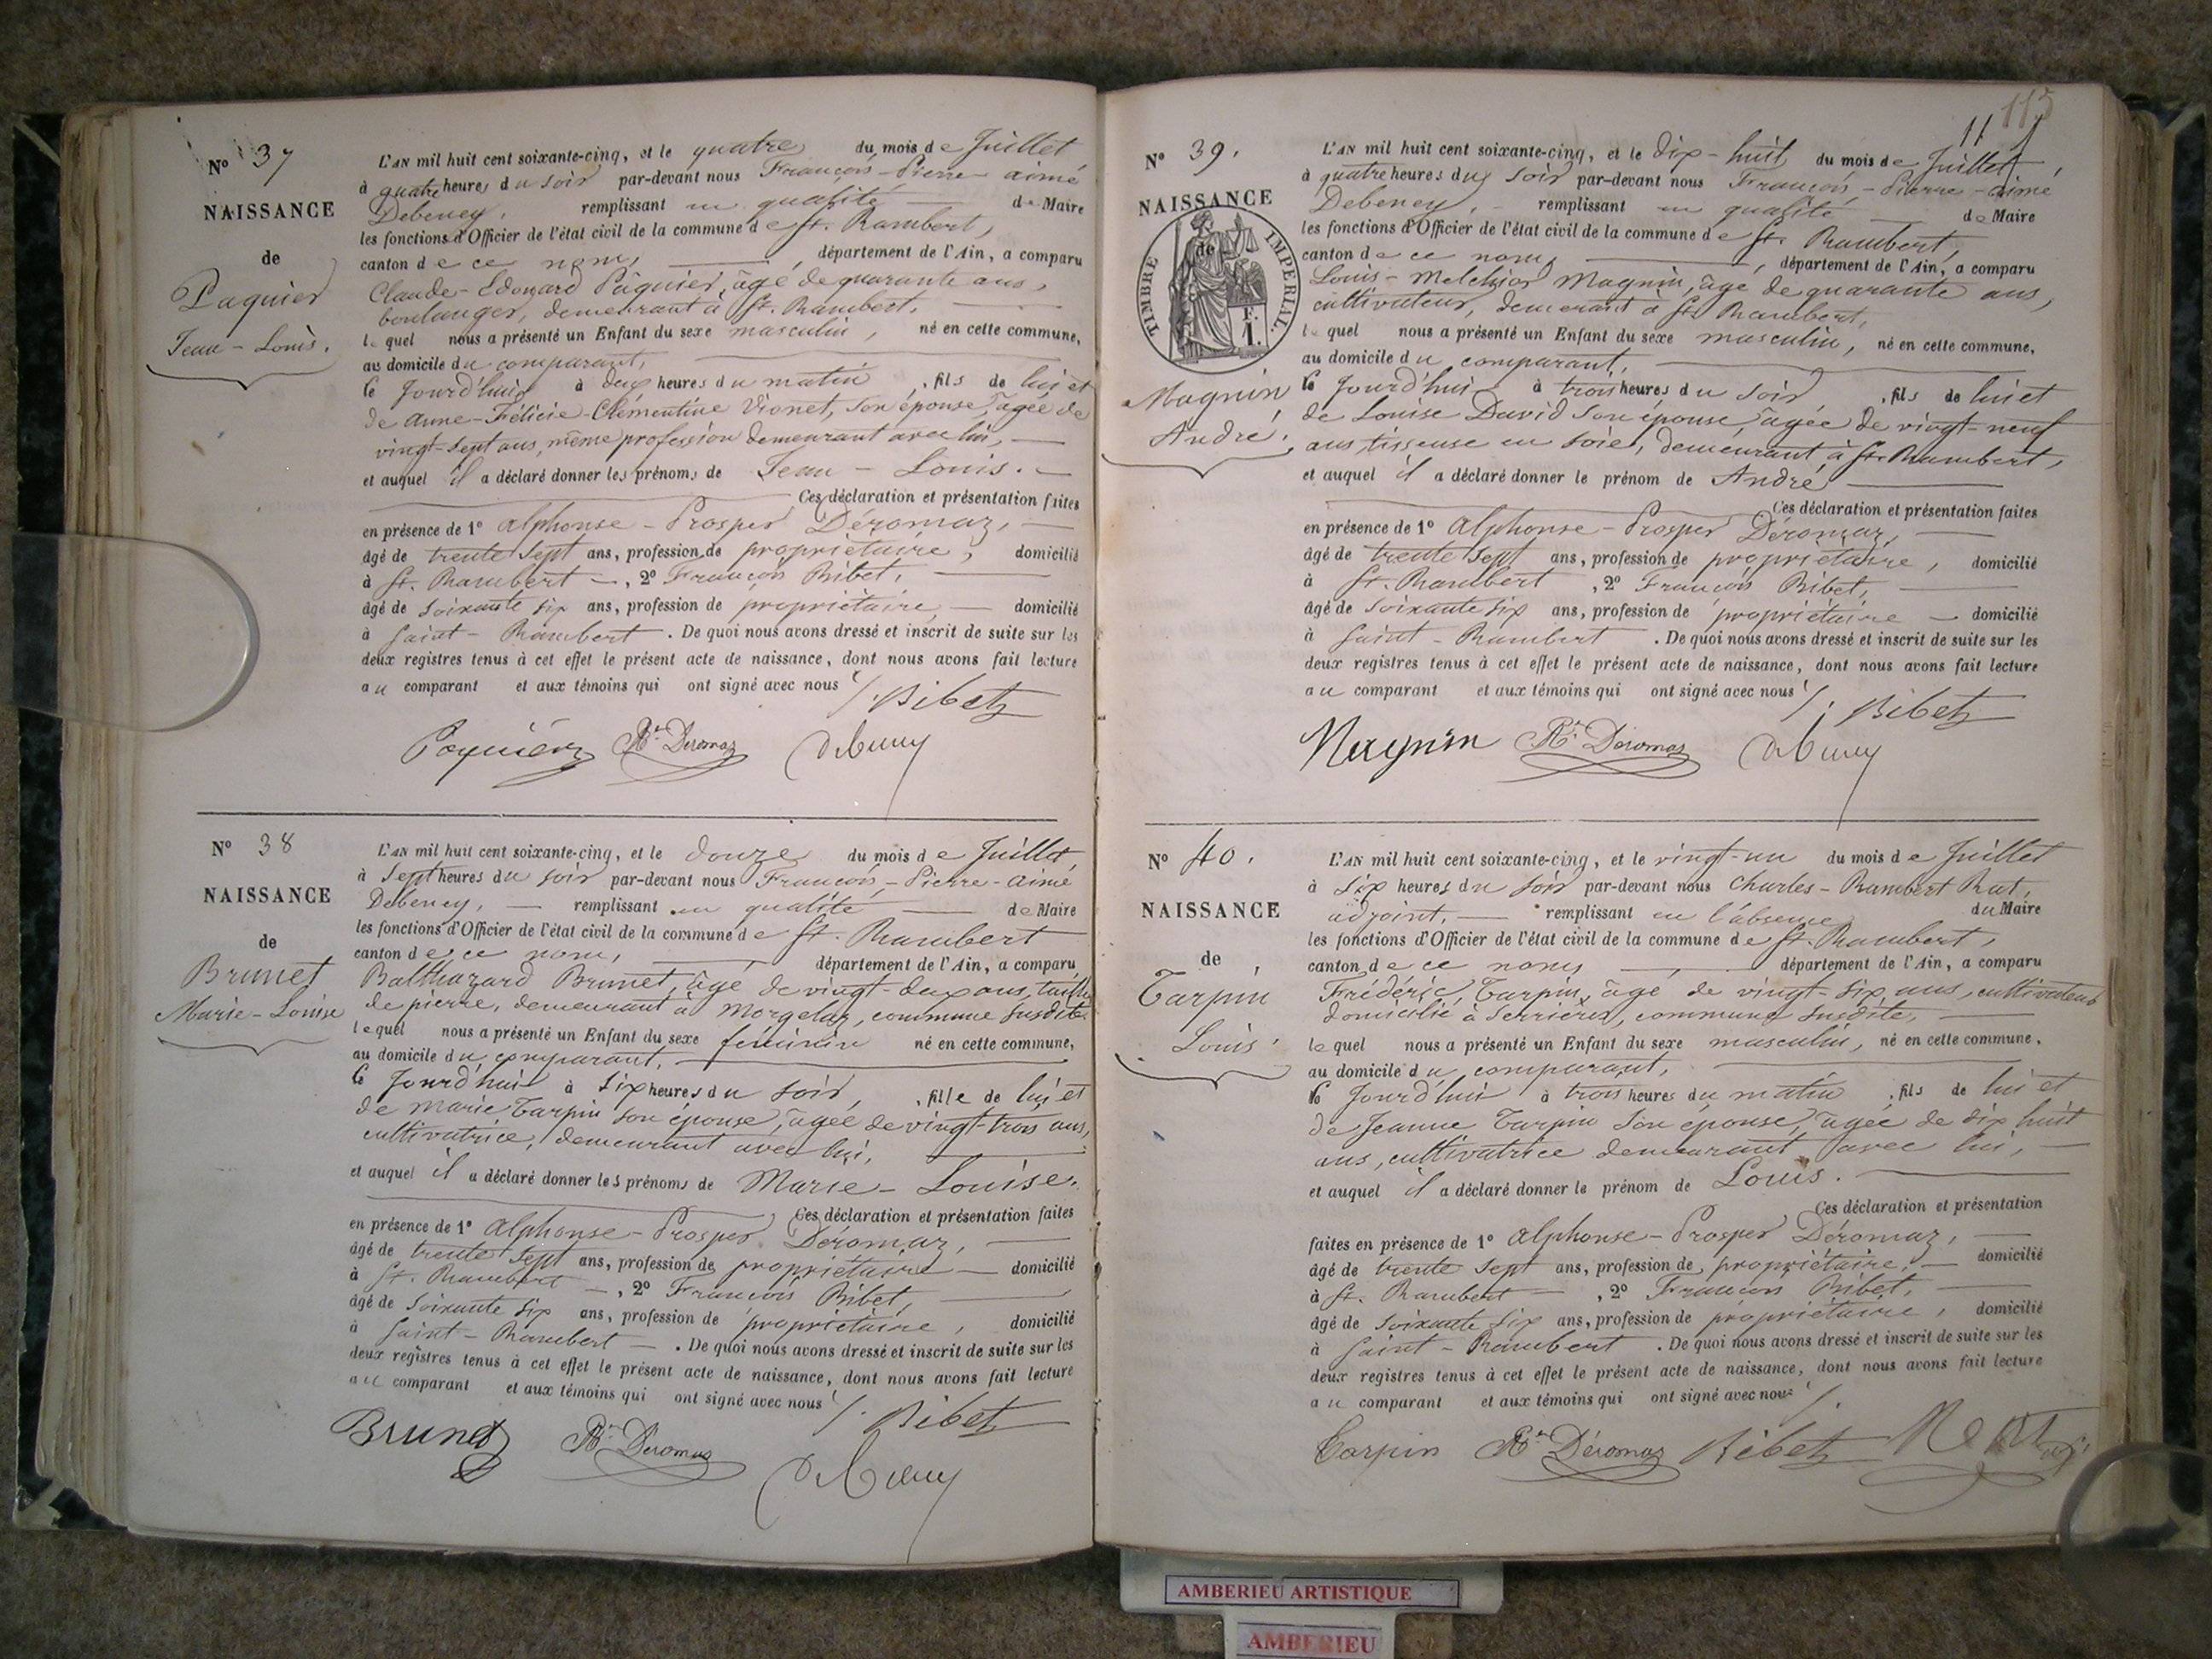 Nº 37
NAISSANCE
de
Paquier
Jean - Louis.
L'AN mil huit cent soixante-cinq, et le quatre du mois de Juillet
à quatre heures du soir par-devant nous François - Pierre aimé
Debeney, remplissant en qualité de Maire
les fonctions d'Officier de l'état civil de la commune de St. Rambert,
canton de ce nom, département de l'Ain, a comparu
Claude - Edouard Paquier, âgé de quarante ans,
boulanger, demeurant à St. Rambert,
lequel nous a présenté un Enfant du sexe masculin, né en cette commune,
au domicile du comparant,
le Jourd'hui à deux heures du matin, fils de lui et
de Anne - Félicie - Clémentine Vionet, son épouse, âgée de
vingt-sept ans, même profession demeurant avec lui,
et auquel il a déclaré donner les prénoms de Jean - Louis.
Ces déclaration et présentation faites
en présence de 1º Alphonse - Prosper Déromaz,
âgé de trente sept ans, profession de propriétaire, domicilié
à St. Rambert, 2º François Bibet,
âgé de soixante six ans, profession de propriétaire, domicilié
à Saint - Rambert. De quoi nous avons dressé et inscrit de suite sur les
deux registres tenus à cet effet le présent acte de naissance, dont nous avons fait lecture
au comparant et aux témoins qui ont signé avec nous /. Bibet
Paquier Déromaz Debeney
Nº 38
NAISSANCE
de
Brunet
Marie - Louise
L'AN mil huit cent soixante-cinq, et le douze du mois de Juillet,
à sept heures du soir par-devant nous François - Pierre - aimé
Debeney, remplissant en qualité de Maire
les fonctions d'Officier de l'état civil de la commune de St. Rambert
canton de ce nom, département de l'Ain, a comparu
Balthazard Brunet, âgé de vingt-deux ans, tailleur
de pierre, demeurant à Morgelaz, commune susdite
lequel nous a présenté un Enfant du sexe féminin né en cette commune,
au domicile du comparant,
le Jourd'hui à six heures du soir, fille de lui et
de Marie Tarpin son épouse, âgée de vingt-trois ans,
cultivatrice, demeurant avec lui,
et auquel il a déclaré donner les prénoms de Marie - Louise.
Ces déclaration et présentation faites
en présence de 1º Alphonse - Prosper Déromaz,
âgé de trente sept ans, profession de propriétaire domicilié
à St. Rambert, 2º François Bibet,
âgé de soixante six ans, profession de propriétaire, domicilié
à Saint - Rambert. De quoi nous avons dressé et inscrit de suite sur les
deux registres tenus à cet effet le présent acte de naissance, dont nous avons fait lecture
au comparant et aux témoins qui ont signé avec nous /. Bibet
Brunet Déromaz Debeney
115
Nº 39.
NAISSANCE
de
TIMBRE IMPERIAL.
F.
1.
Magnin
André.
L'AN mil huit cent soixante-cinq, et le dix-huit du mois de Juillet,
à quatre heures du soir par-devant nous François - Pierre - aimé
Debeney, remplissant en qualité de Maire
les fonctions d'Officier de l'état civil de la commune de St. Rambert,
canton de ce nom, département de l'Ain, a comparu
Louis - Melchior Magnin, âgé de quarante ans,
cultivateur, demeurant à St. Rambert,
lequel nous a présenté un Enfant du sexe masculin, né en cette commune,
au domicile du comparant,
le Jourd'hui à trois heures du soir, fils de lui et
de Louise David son épouse, âgée de vingt-neuf
ans, tisseuse en soie, demeurant à St. Rambert,
et auquel il a déclaré donner le prénom de André,
Ces déclaration et présentation faites
en présence de 1º Alphonse - Prosper Déromaz,
âgé de trente sept ans, profession de propriétaire, domicilié
à St. Rambert, 2º François Bibet,
âgé de soixante six ans, profession de propriétaire domicilié
à Saint - Rambert. De quoi nous avons dressé et inscrit de suite sur les
deux registres tenus à cet effet le présent acte de naissance, dont nous avons fait lecture
au comparant et aux témoins qui ont signé avec nous /. Bibet
Magnin Déromaz Debeney
Nº 40.
NAISSANCE
de
Tarpin
Louis
L'AN mil huit cent soixante-cinq, et le vingt-un du mois de Juillet
à six heures du soir par-devant nous Charles - Rambert Rut,
adjoint, remplissant en l'absence du Maire
les fonctions d'Officier de l'état civil de la commune de St. Rambert,
canton de ce nom, département de l'Ain, a comparu
Frédéric Tarpin âgé de vingt-six ans, cultivateur
domicilié à Serrières, commune susdite,
lequel nous a présenté un Enfant du sexe masculin, né en cette commune,
au domicile du comparant,
le Jourd'hui à trois heures du matin, fils de lui et
de Jeanne Tarpin son épouse, âgée de dix huit
ans, cultivatrice demeurant avec lui,
et auquel il a déclaré donner le prénom de Louis.
Ces déclaration et présentation
faites en présence de 1º Alphonse - Prosper Déromaz,
âgé de trente sept ans, profession de propriétaire, domicilié
à St. Rambert, 2º François Bibet,
âgé de soixante six ans, profession de propriétaire, domicilié
à Saint - Rambert. De quoi nous avons dressé et inscrit de suite sur les
deux registres tenus à cet effet le présent acte de naissance, dont nous avons fait lecture
au comparant et aux témoins qui ont signé avec nous /.
Tarpin Déromaz Bibet
AMBERIEU ARTISTIQUE
AMBERIEU